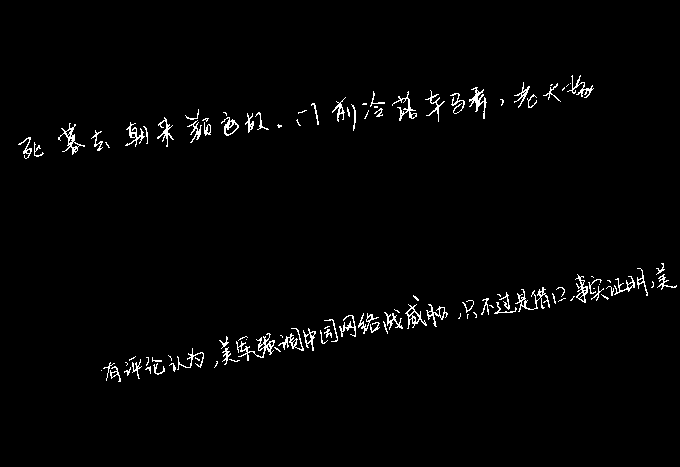 死暮去朝来颜色故。门前冷落车马稀，老大嫁
有评论认为，美军强调中国网络战威胁，只不过是借口，事实证明，美